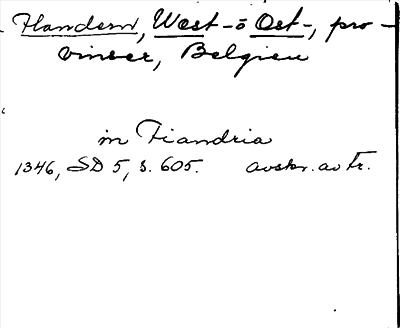 Flandern, West- o Ost-, pro-
vinser, Belgien
in Fiandria
1346, SD 5, s. 605. avskr. av tr.